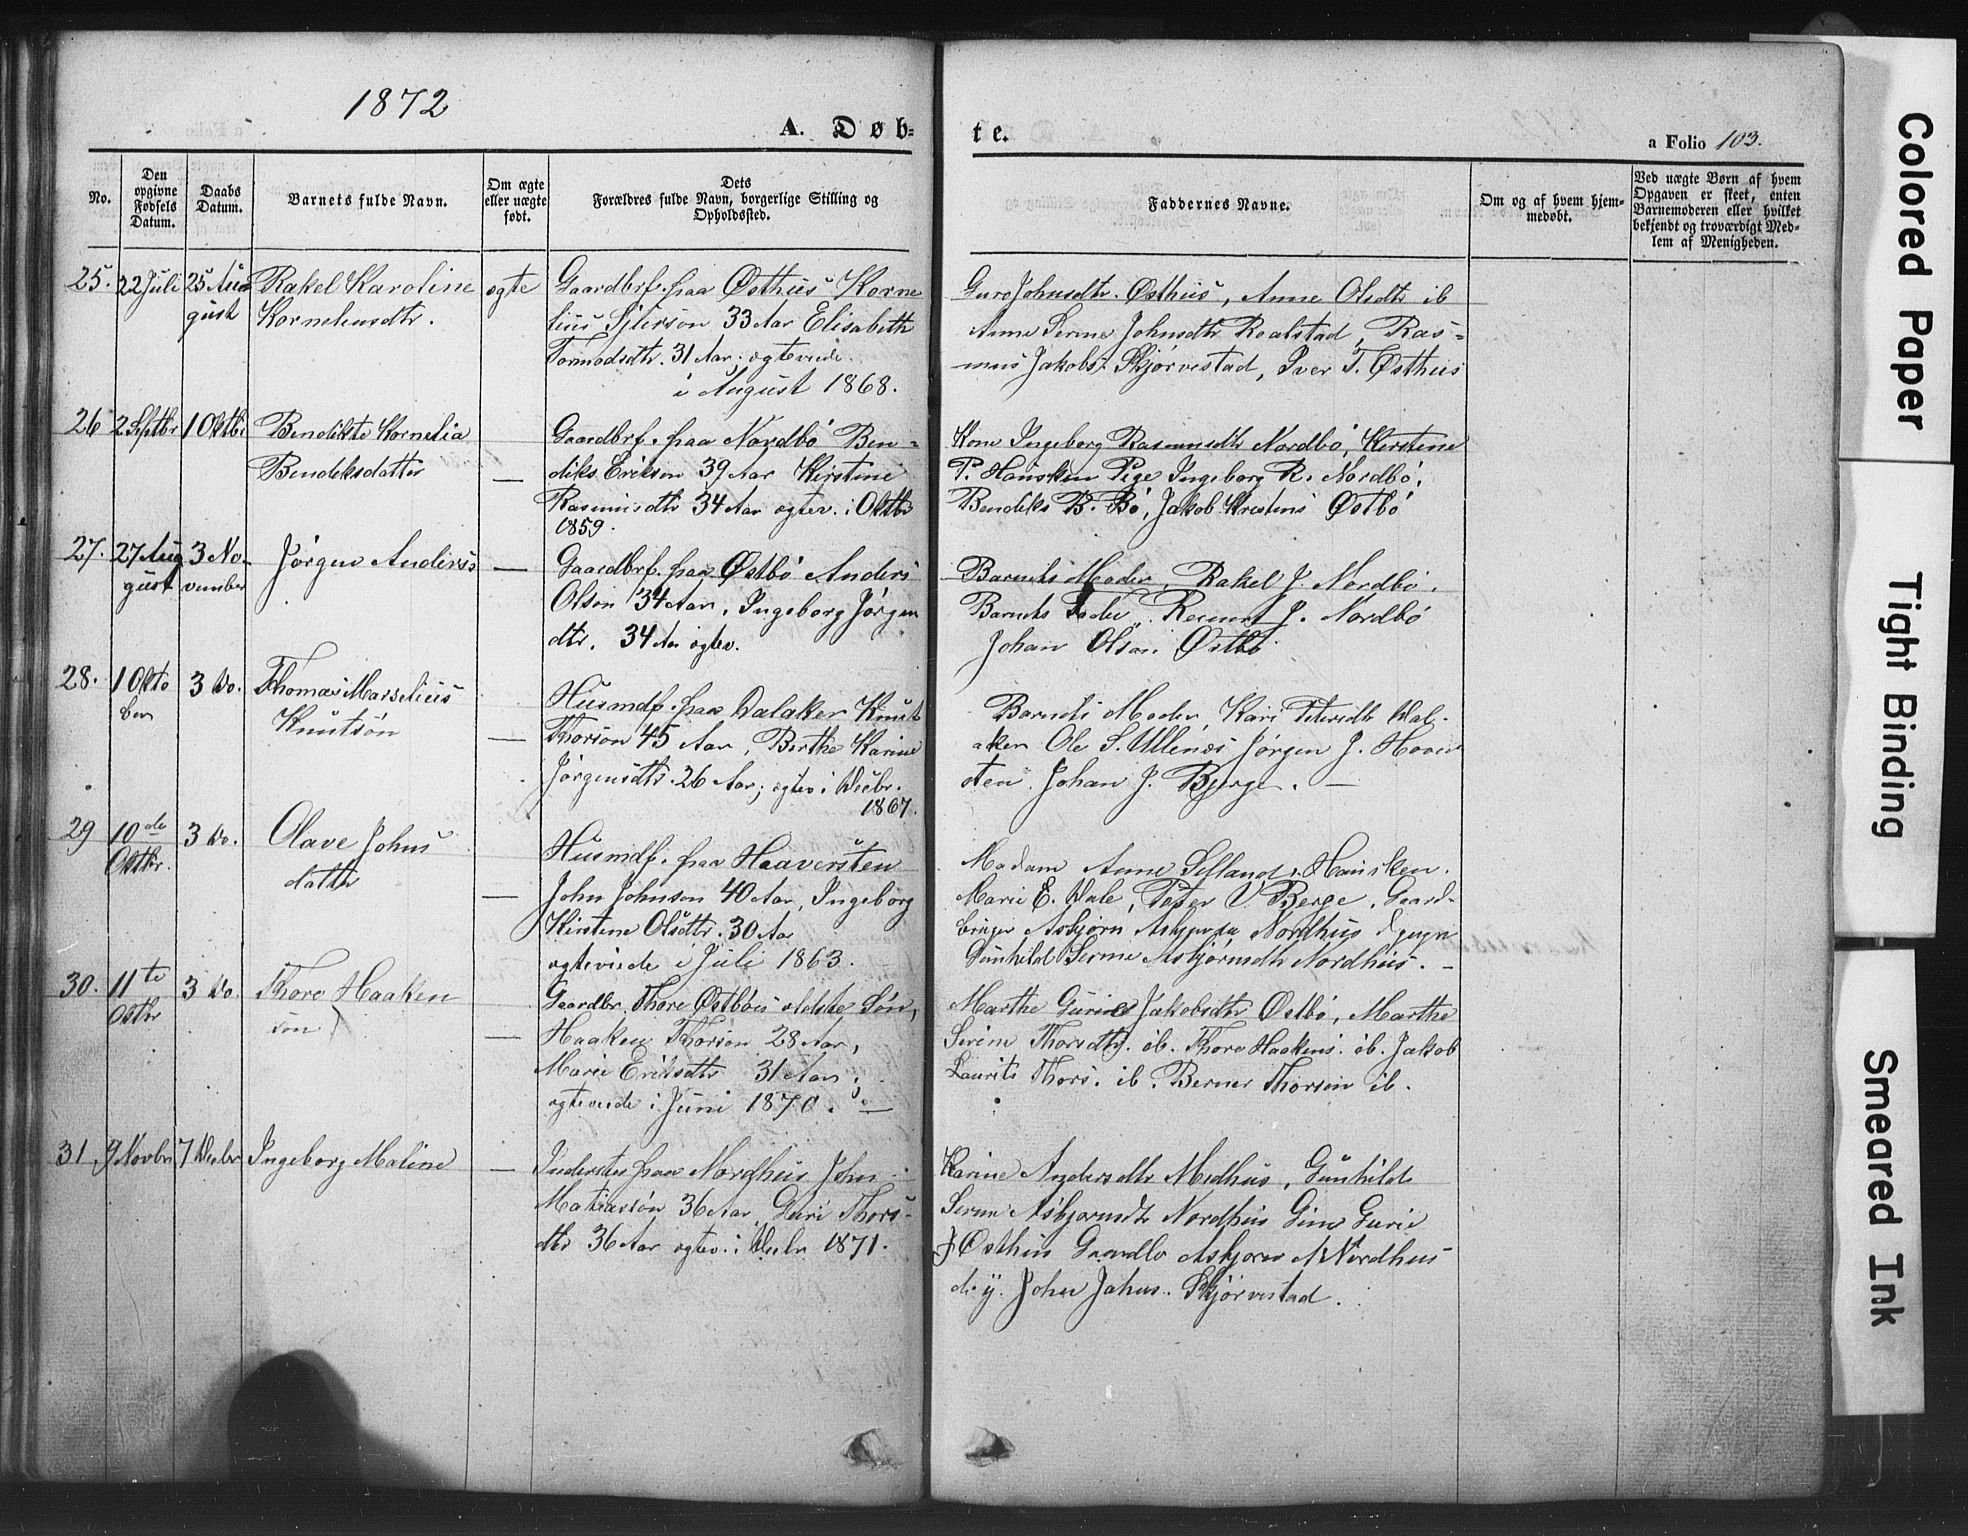 1872
A. Døb=
te.
a Folio 103.
No.
Den opgivne Fødsels Datum.
Daabs Datum.
Barnets fulde Navn.
Om ægte eller uægte født.
Dets Forældres fulde Navn, borgerlige Stilling og Opholdssted.
Faddernes Navne.
Om og af hvem hjemmedøbt.
Ved uægte Børn af hvem Opgaven er skeet, enten Barnemoderen eller hvilket bekjendt og troværdigt Medlem af Menigheden.
25. 22 Juli 25 August
Rakel Karoline
Korneliusdtr.
ægte
Gaardbrf. paa Østhus Korne
lius 33 Aar Elisabeth
Tormodsdtr. 31 Aar. ægteviede
i August 1868.
Guro Johnsdtr. Østhus, Anne Olsdtr ib
Anne Serine Johnsdtr Roalstad, Ras=
mus Jakobs. Skjørvestad, Iver T. Østhus
26 2 Septbr 1 Oktbr
Bendikte Kornelia
Bendiksdatter
—
Gaardbrf. paa Nordbö Ben=
diks Erikson 39 Aar Kirstine
Rasmusdtr 34 Aar ægtev. i Oktbr
1859.
Kone Ingeborg Rasmusdtr Nordbö, Kirstine
P. Hausken Pige Ingeborg R. Nordbö,
Bendiks B. Bö, Jakob Kristens Østbö
27. 27 August 3 November
Jørgen Anders
—
Gaardbrf. paa Østbö Anders
Olson 34 Aar, Ingeborg Jørgen
dtr. 34 Aar ægtev.
Barnets Moder, Rakel J. Nordbö.
Barnets Fader, J. Nordbö
Johan Olson Østbö
28. 1 Oktober 3 Do.
Thomas Marselius
Knutsön
—
Husmdf. paa Dalaker Knut
Thorson 45 Aar, Berthe Karine
Jørgensdtr. 26 Aar, ægtev i Decbr.
1867.
Barnets Moder, Kari Petersdtr Dal=
aker Ole S. Ullenes Jørgen J. Haaver
sten. Johan J. Bjerge. —
29 10de Oktbr. 3 Do.
Olave Johns
datter
—
Husmdf. paa Haaversten
John Johnson 40 Aar, Ingeborg
Kirstene Olsdtr. 30 Aar
ægteviede i Juli 1863.
Madam Anne Selland, Hausken.
Marie E. Dale, Peter V Berge, Gaard-
bruger Asbjørn Nordhus
Gunhild Serine Asbjørnsdtr Nordhus. —
30. 11te Oktbr 3 Do.
Thore Haaken
son
—
Gaardbr. Thore Østbøs eldste Søn,
Haaken Thorson 28 Aar,
Marie Eriksdtr 31 Aar,
ægteviede i Juni 1870. —
Marthe Gurine Jakobsdtr Østbö, Marthe
Serine Thorsdtr. ib. Thore Haakens. ib. Jakob
Laurits Thors. ib. Berner Thorson ib.
31 9 Novbr 7 Decbr
Ingeborg Maline
—
Inderster paa Nordhus John
Matiasson 36 Aar, Guri Thors-
dtr 36 Aar ægtev. i Decbr 1871.
Karine Andersdtr Medhus, Gunhild
Serine Asbjørnsdtr Nordhus Gurie
Østhus Gaardbr Asbjørn A Nordhus
John Johns. Skjørvestad.
Colored Paper
Tight Binding
Smeared Ink